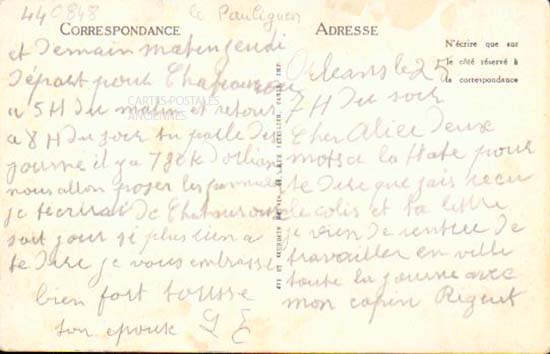 440848
le Pouliguen
CORRESPONDANCE
ADRESSE
N'écrire que sur
le côté réservé à
la correspondance
CARTES-POSTALES
ANCIENNES
Orleans le 25
7H du soir
Cher Alice deux
mots a la hate pour
te dire que jais recu
le colis et ta lettre
je vien de rentre de
travailler en ville
toute la journe avec
mon copin Rigeut
et demain matin jeudi
départ pour Chateauroux
a 5H du matin et retour
a 8H du soir tu parle des
journe il y a dorlian
nous allon poser les
je tecrirai de Chatauroux
soit pour si plus rien a
te dire je vous embrasse
bien fort tousse
ton epoux L E